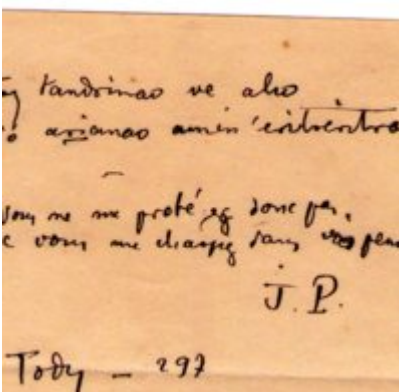 tandrinao ve aho
arianao amin'eritreritra
ne me protégez donc pas,
vous me chassez dans vos
J. P.
Tody - 297